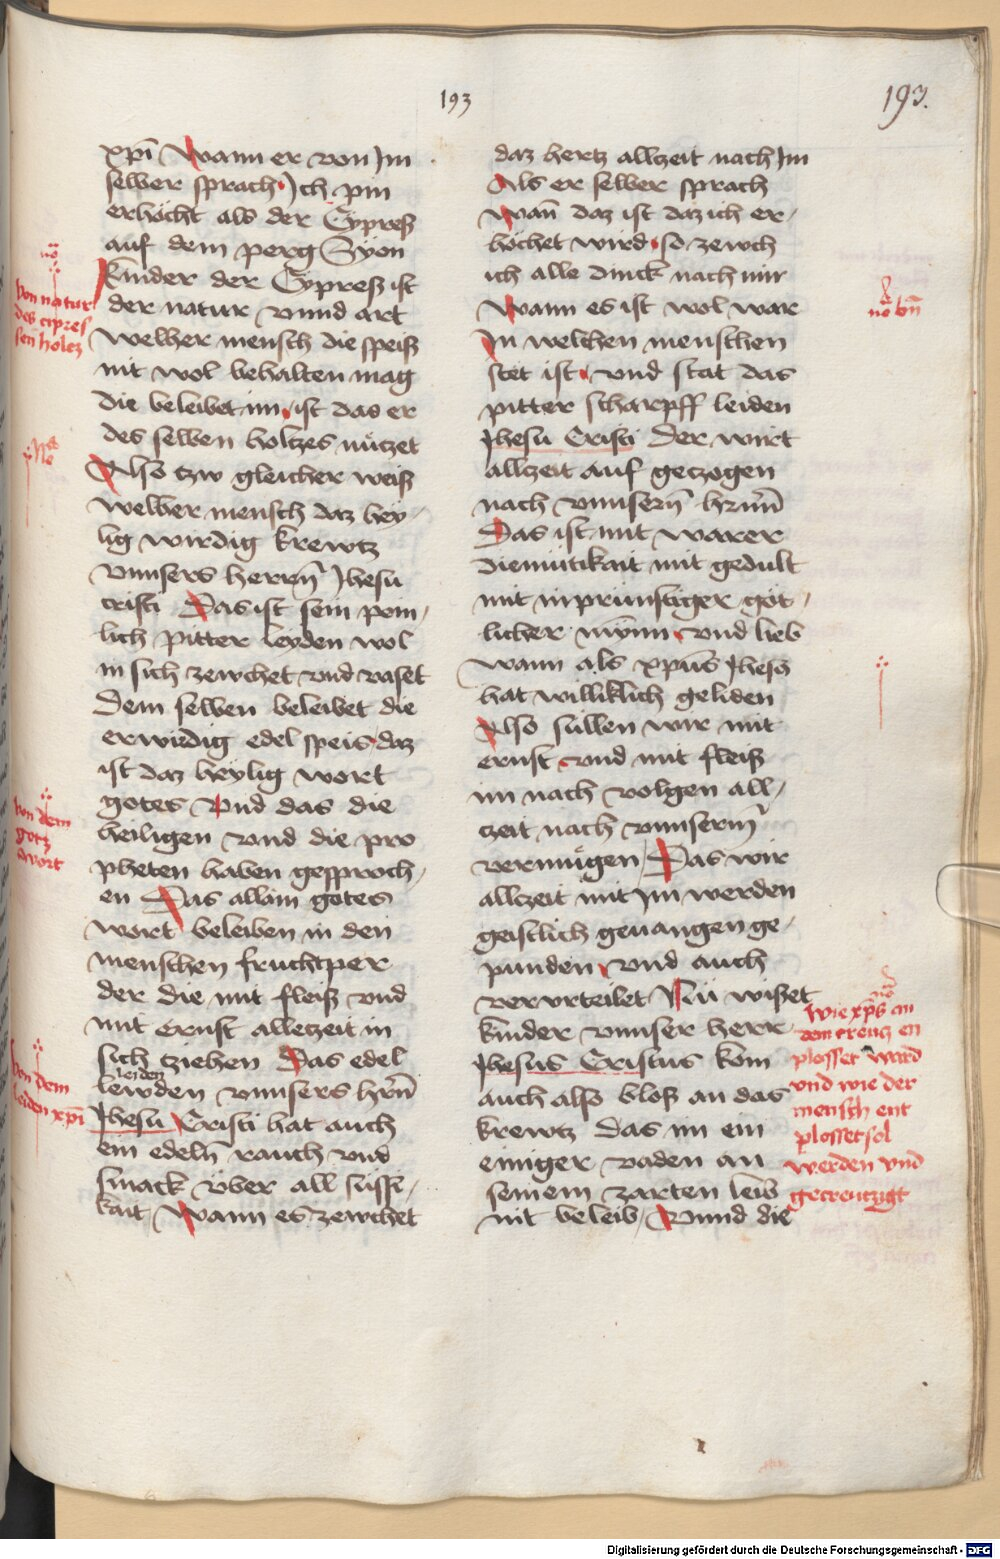 193
193.
xpī Wann er von Im
selber sprach Ich pin
erhöcht als der Cypreß
auf dem perg Syon
Kinder der Cypreß ist
der natur vnnd art
welher mensch die speiß
nit wol behalten mag
die beleibet im ist das er
des selben holtzes nützet
Also tzw gleicher weiß
welher mensch daz hey-
lig wirdig krewtz
vnnsers herrñ Jhesu
cristi Das ist sein pein-
lich pitter leyden wol
in sich zewchet vnd vaset
Dem selben beleibet die
erwirdig edel speis daz
ist daz heylig wort
gotes Vnd das die
heiligen vnd die pro
pheten haben gesproch-
en Das allain gotes
wort beleiben in den
menschen fruchtper
der die mit fleiß vnd
mit ernst alletzeit in
sich tziehen Das edel
leiden
lewden vnnsers hrñ
Jhesu Cristi hat auch
ein edelñ rauch vnd
smack über all süssi-
kait Wann es zewchet
no
von natur
des cipres
sen holtz
von dem
gotz
wort
von dem
leiden xpī
daz hertz allzeit nach Im
Als er selber sprach
Wañ daz ist daz ich er-
höchet wird so zewch
ich alle dinck nach mir
Wann es ist wol war
In welchen menschen
stet ist vnd stat das
pitter scharpff leiden
Jhesu Cristi Der wirt
allzeit auf getzogen
nach vnnserñ hrñ
Das ist mit warer
diemütikait mit gedult
mit inprünstiger göt-
licher mÿnn vnd lieb
wann als xpūs Jhesus
hat williklich geliden
Also süllen wir mit
ernst vnd mit fleiß
im nach volgen all-
tzeit nach vnnserm
vermügen Das wir
allzeit mit Im werden
geistlich geuangen ge-
punden vnd auch
vervrteilet Nü wißet
kinder vnnser herr
Jhesus Cristus kom
auch also bloß an das
krewtz das im ein
einiger vaden an
seinem zarten leib
nit beleib Vnnd die
no
Wie xp̄s an
dem creutz en
plosset ward
vnd wie der
mensch ent
plosset sol
werden vnd
gecreutzigt
Digitalisierung gefördert durch die Deutsche Forschungsgemeinschaft - DFG